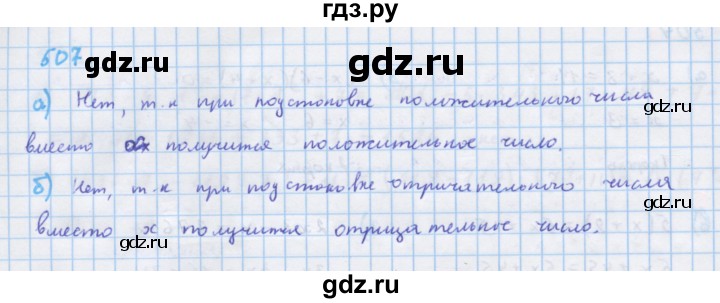 гдз.ру
507
gdz.ru
gdz.ru
gdz.ru
а) Нет, т.к при подстановке положительного числа
вместо х получится положительное число.
gdz.ru
gdz.ru
б) Нет, т.к при подстановке отрицательного числа
вместо х получится отрицательное число.
gdz.ru
gdz.ru
gdz.ru